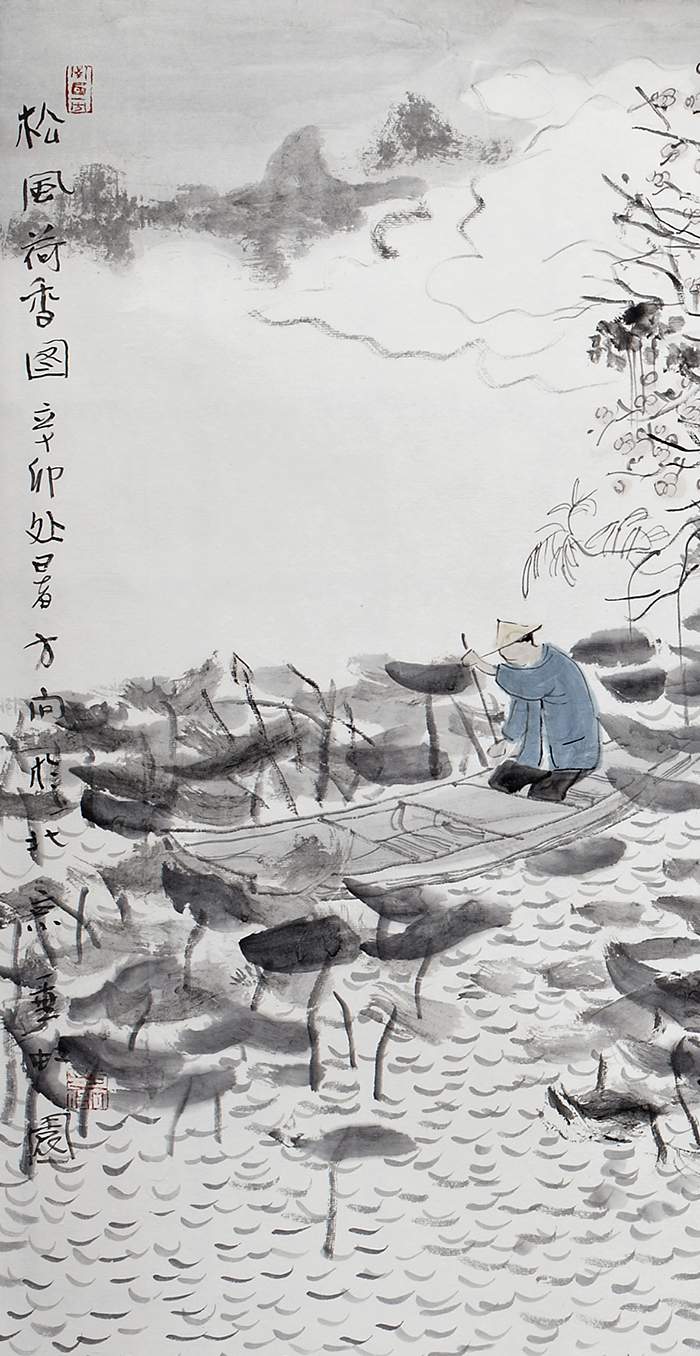 松風荷香图辛卯处暑方向於北京園